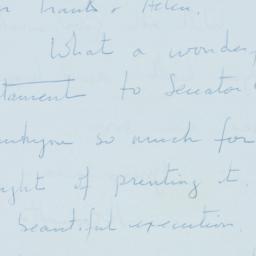 Frank & Helen.
What a wonder
tament to Senator
ankyou so much for
ght of printing it.
beautiful execution.